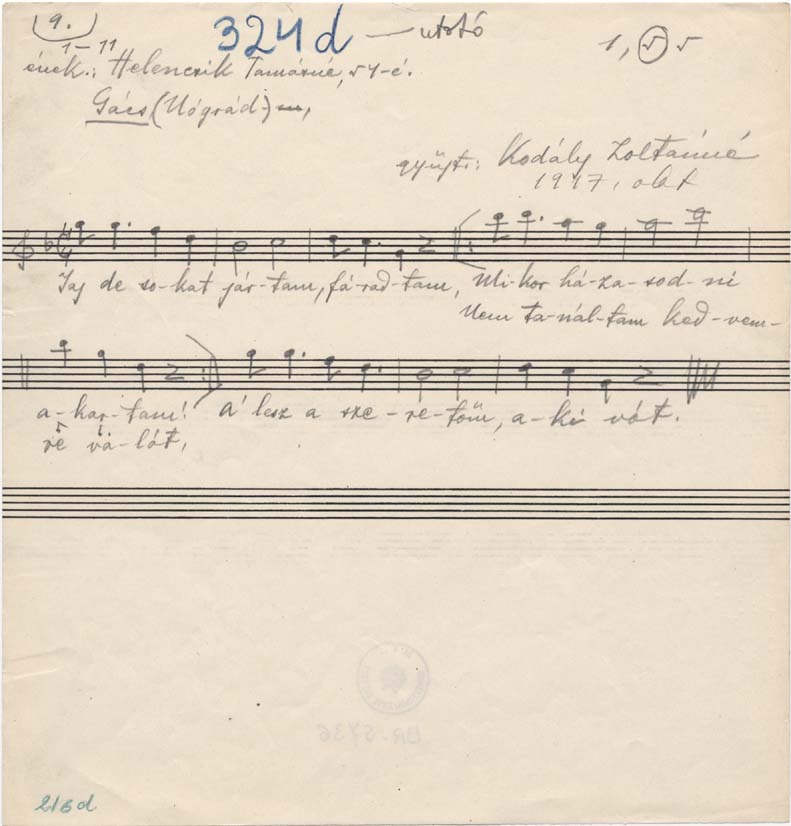 9.
324d — utsó
1, 5 5
1–11
ének.: Helencsik Tamásné, 54-é.
Gács (Nógrád),
gyűjt.: Kodály Zoltánné
1917. okt
Jaj de so-kat jár-tam, fá-rad-tam, Mi-kor há-za-sod-ni
Nem ta-nál-tam ked-vem-
a-kar-tam! A' lesz a sze-re-tőm, a-ki vót.
re va-lót,
BR. 5736
216d